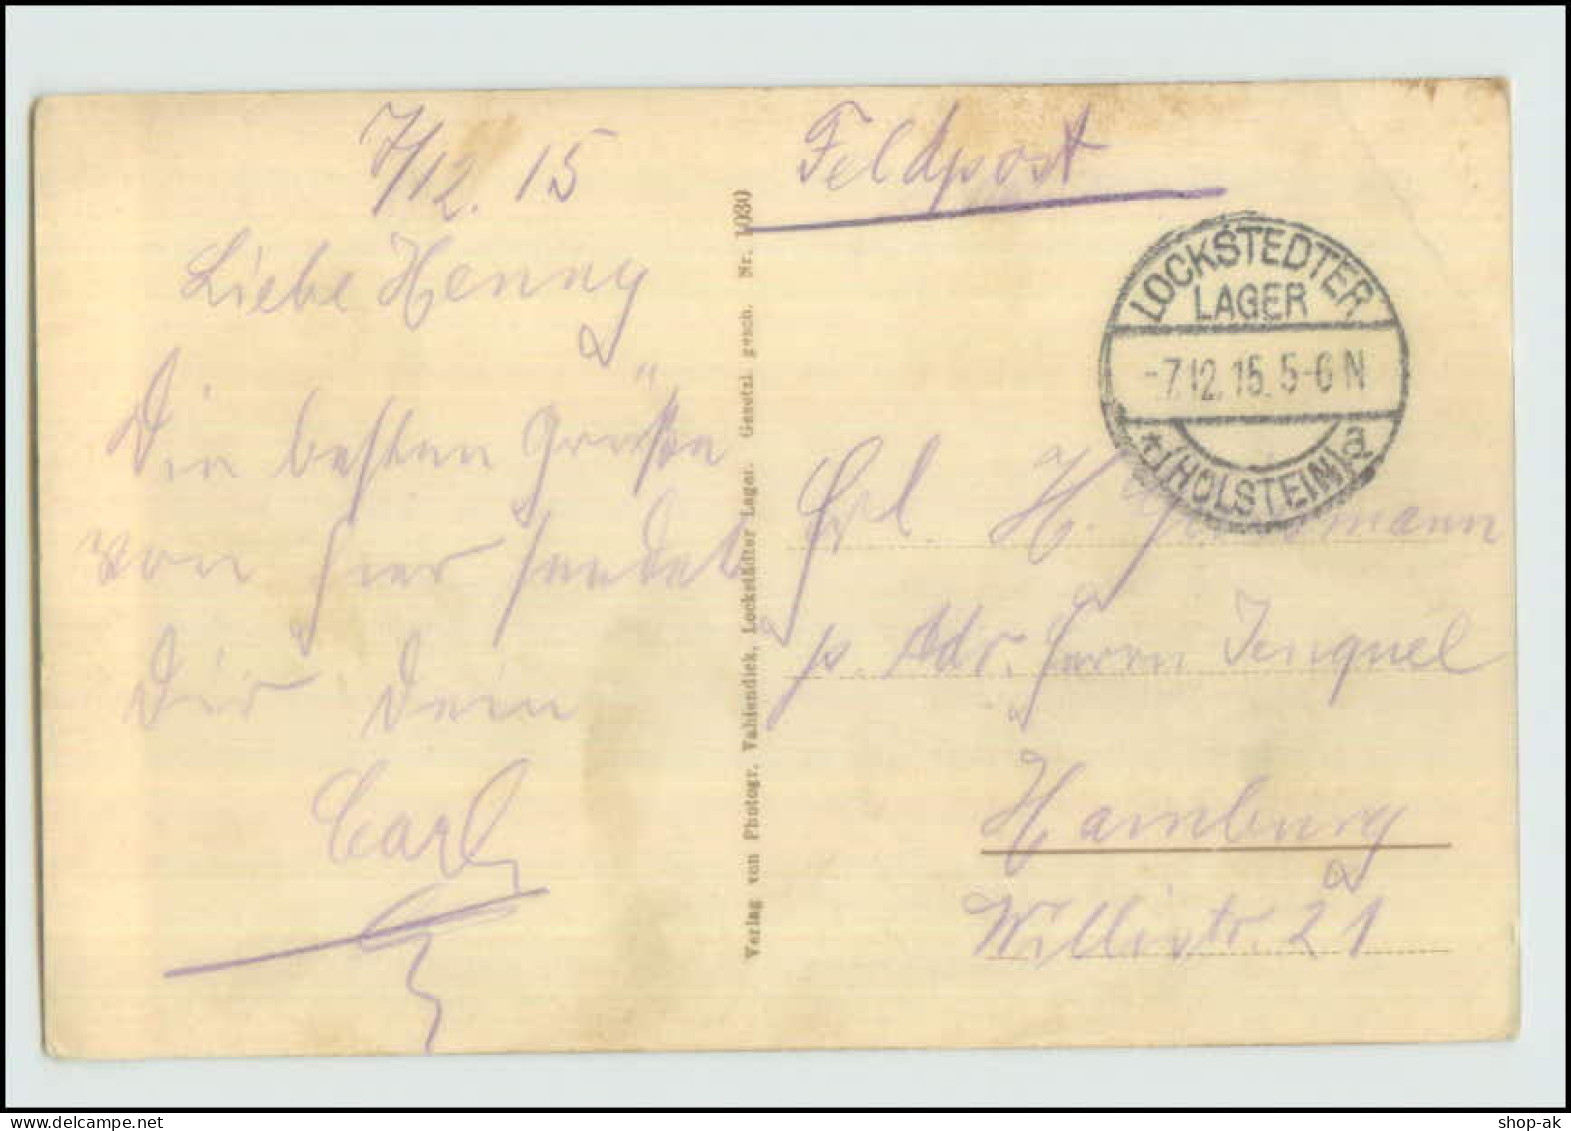 7/12. 15
Liebe Henny
Die besten Grüße
von hier sendet
Dir Dein
Carl
Verlag von Photogr. Vahlendick, Lockstädter Lager. Gesetzl. gesch. Nr. 1030
Feldpost
LOCKSTEDTER
LAGER
-7.12.15.5-6 N
* (HOLSTEIN) a
Frl. H.
p. Adr. Herrn Jenquel
Hamburg
Willistr. 21
shop-ak